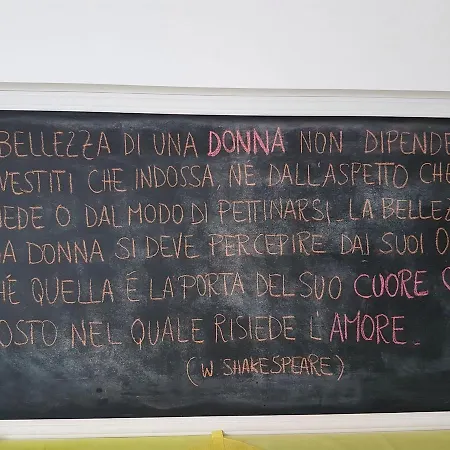 BELLEZZA DI UNA DONNA NON DIPENDE
VESTITI CHE INDOSSA, NÉ DALL'ASPETTO CHE
IEDE O DAL MODO DI PETTINARSI. LA BELLEZ
NA DONNA SI DEVE PERCEPIRE DAI SUOI O
HÉ QUELLA É LA PORTA DEL SUO CUORE
OSTO NEL QUALE RISIEDE L'AMORE.
(W SHAKESPEARE)